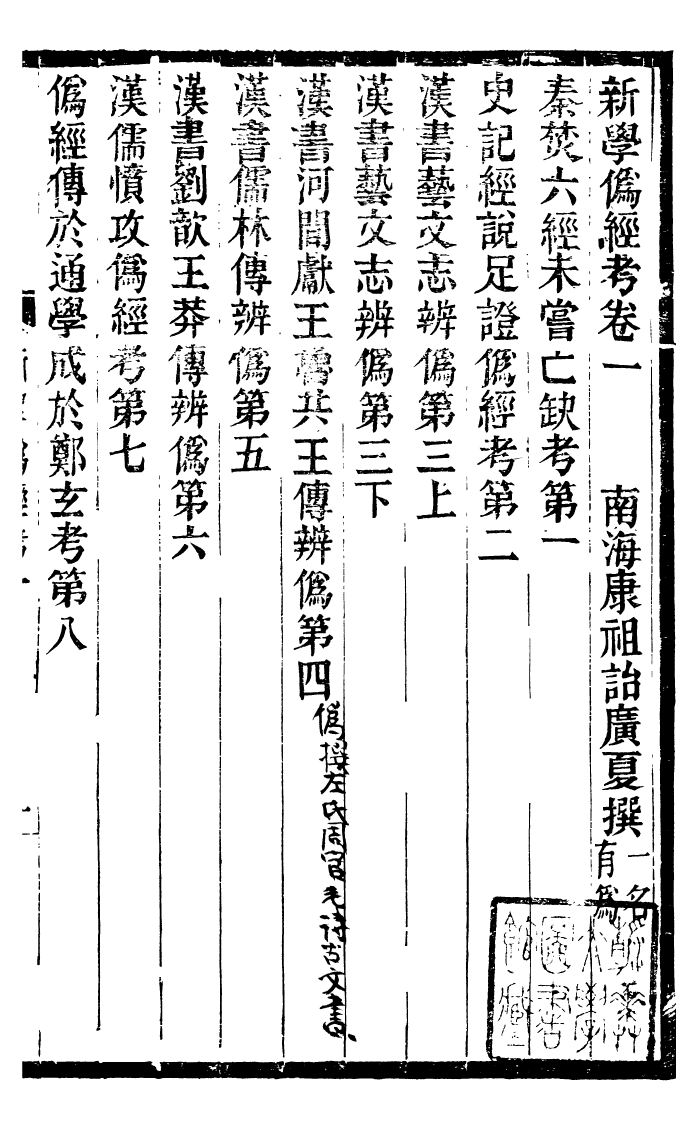 新學僞經考卷一　　南海康祖詒廣夏撰一名有爲
秦焚六經未嘗亡缺考第一
史記經說足證僞經考第二
漢書藝文志辨僞第三上
漢書藝文志辨僞第三下
漢書河間獻王魯共王傳辨僞第四 僞授左氏周官毛詩古文書、
漢書儒林傳辨僞第五
漢書劉歆王莽傳辨僞第六
漢儒憤攻僞經考第七
僞經傳於通學成於鄭玄考第八